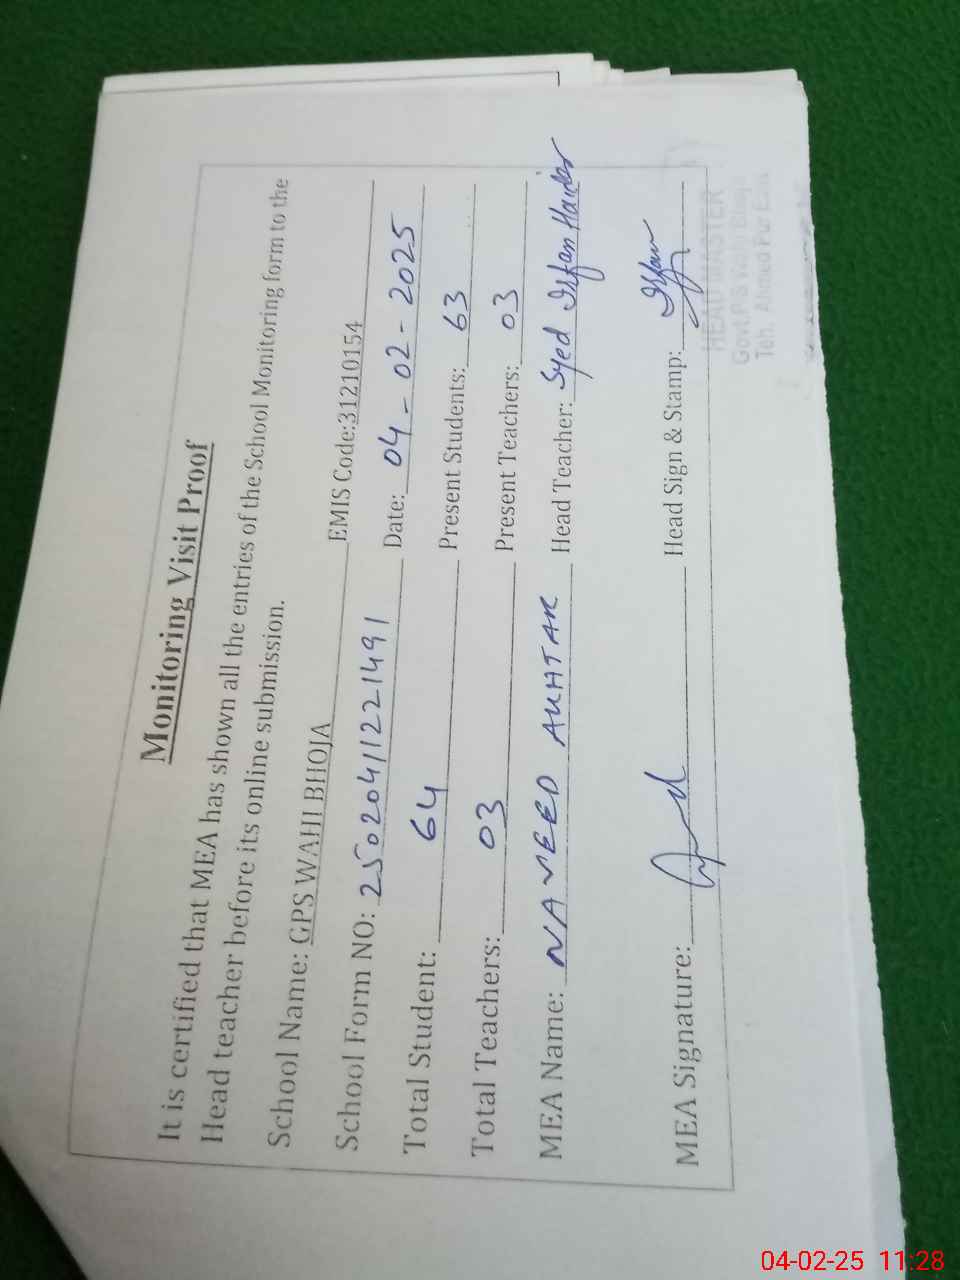 Monitoring Visit Proof
It is certified that MEA has shown all the entries of the School Monitoring form to the
Head teacher before its online submission.
School Name: GPS WAHI BHOJA EMIS Code:31210154
School Form NO: 25020411221491 Date: 04-02-2025
Total Student: 64 Present Students: 63
Total Teachers: 03 Present Teachers: 03
MEA Name: NAVEED AKHTAR Head Teacher: Syed Irfan Haider
MEA Signature: Head Sign & Stamp: Irfan
HEAD MASTER
Govt. P/S Wahi Bhoja
Teh. Ahmed Pur East
04-02-25 11:28